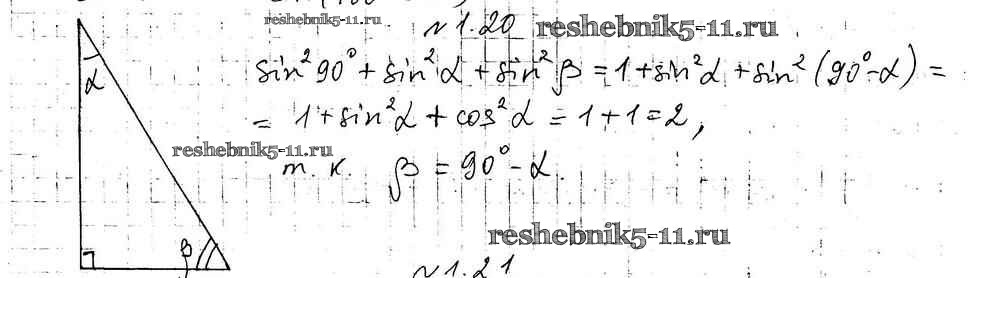 reshebnik5-11.ru
№1.20 reshebnik5-11.ru
α
sin²90° + sin²α + sin²β = 1 + sin²α + sin²(90°-α) =
= 1 + sin²α + cos²α = 1 + 1 = 2,
reshebnik5-11.ru
т. к. β = 90° - α.
reshebnik5-11.ru
β
№1.21